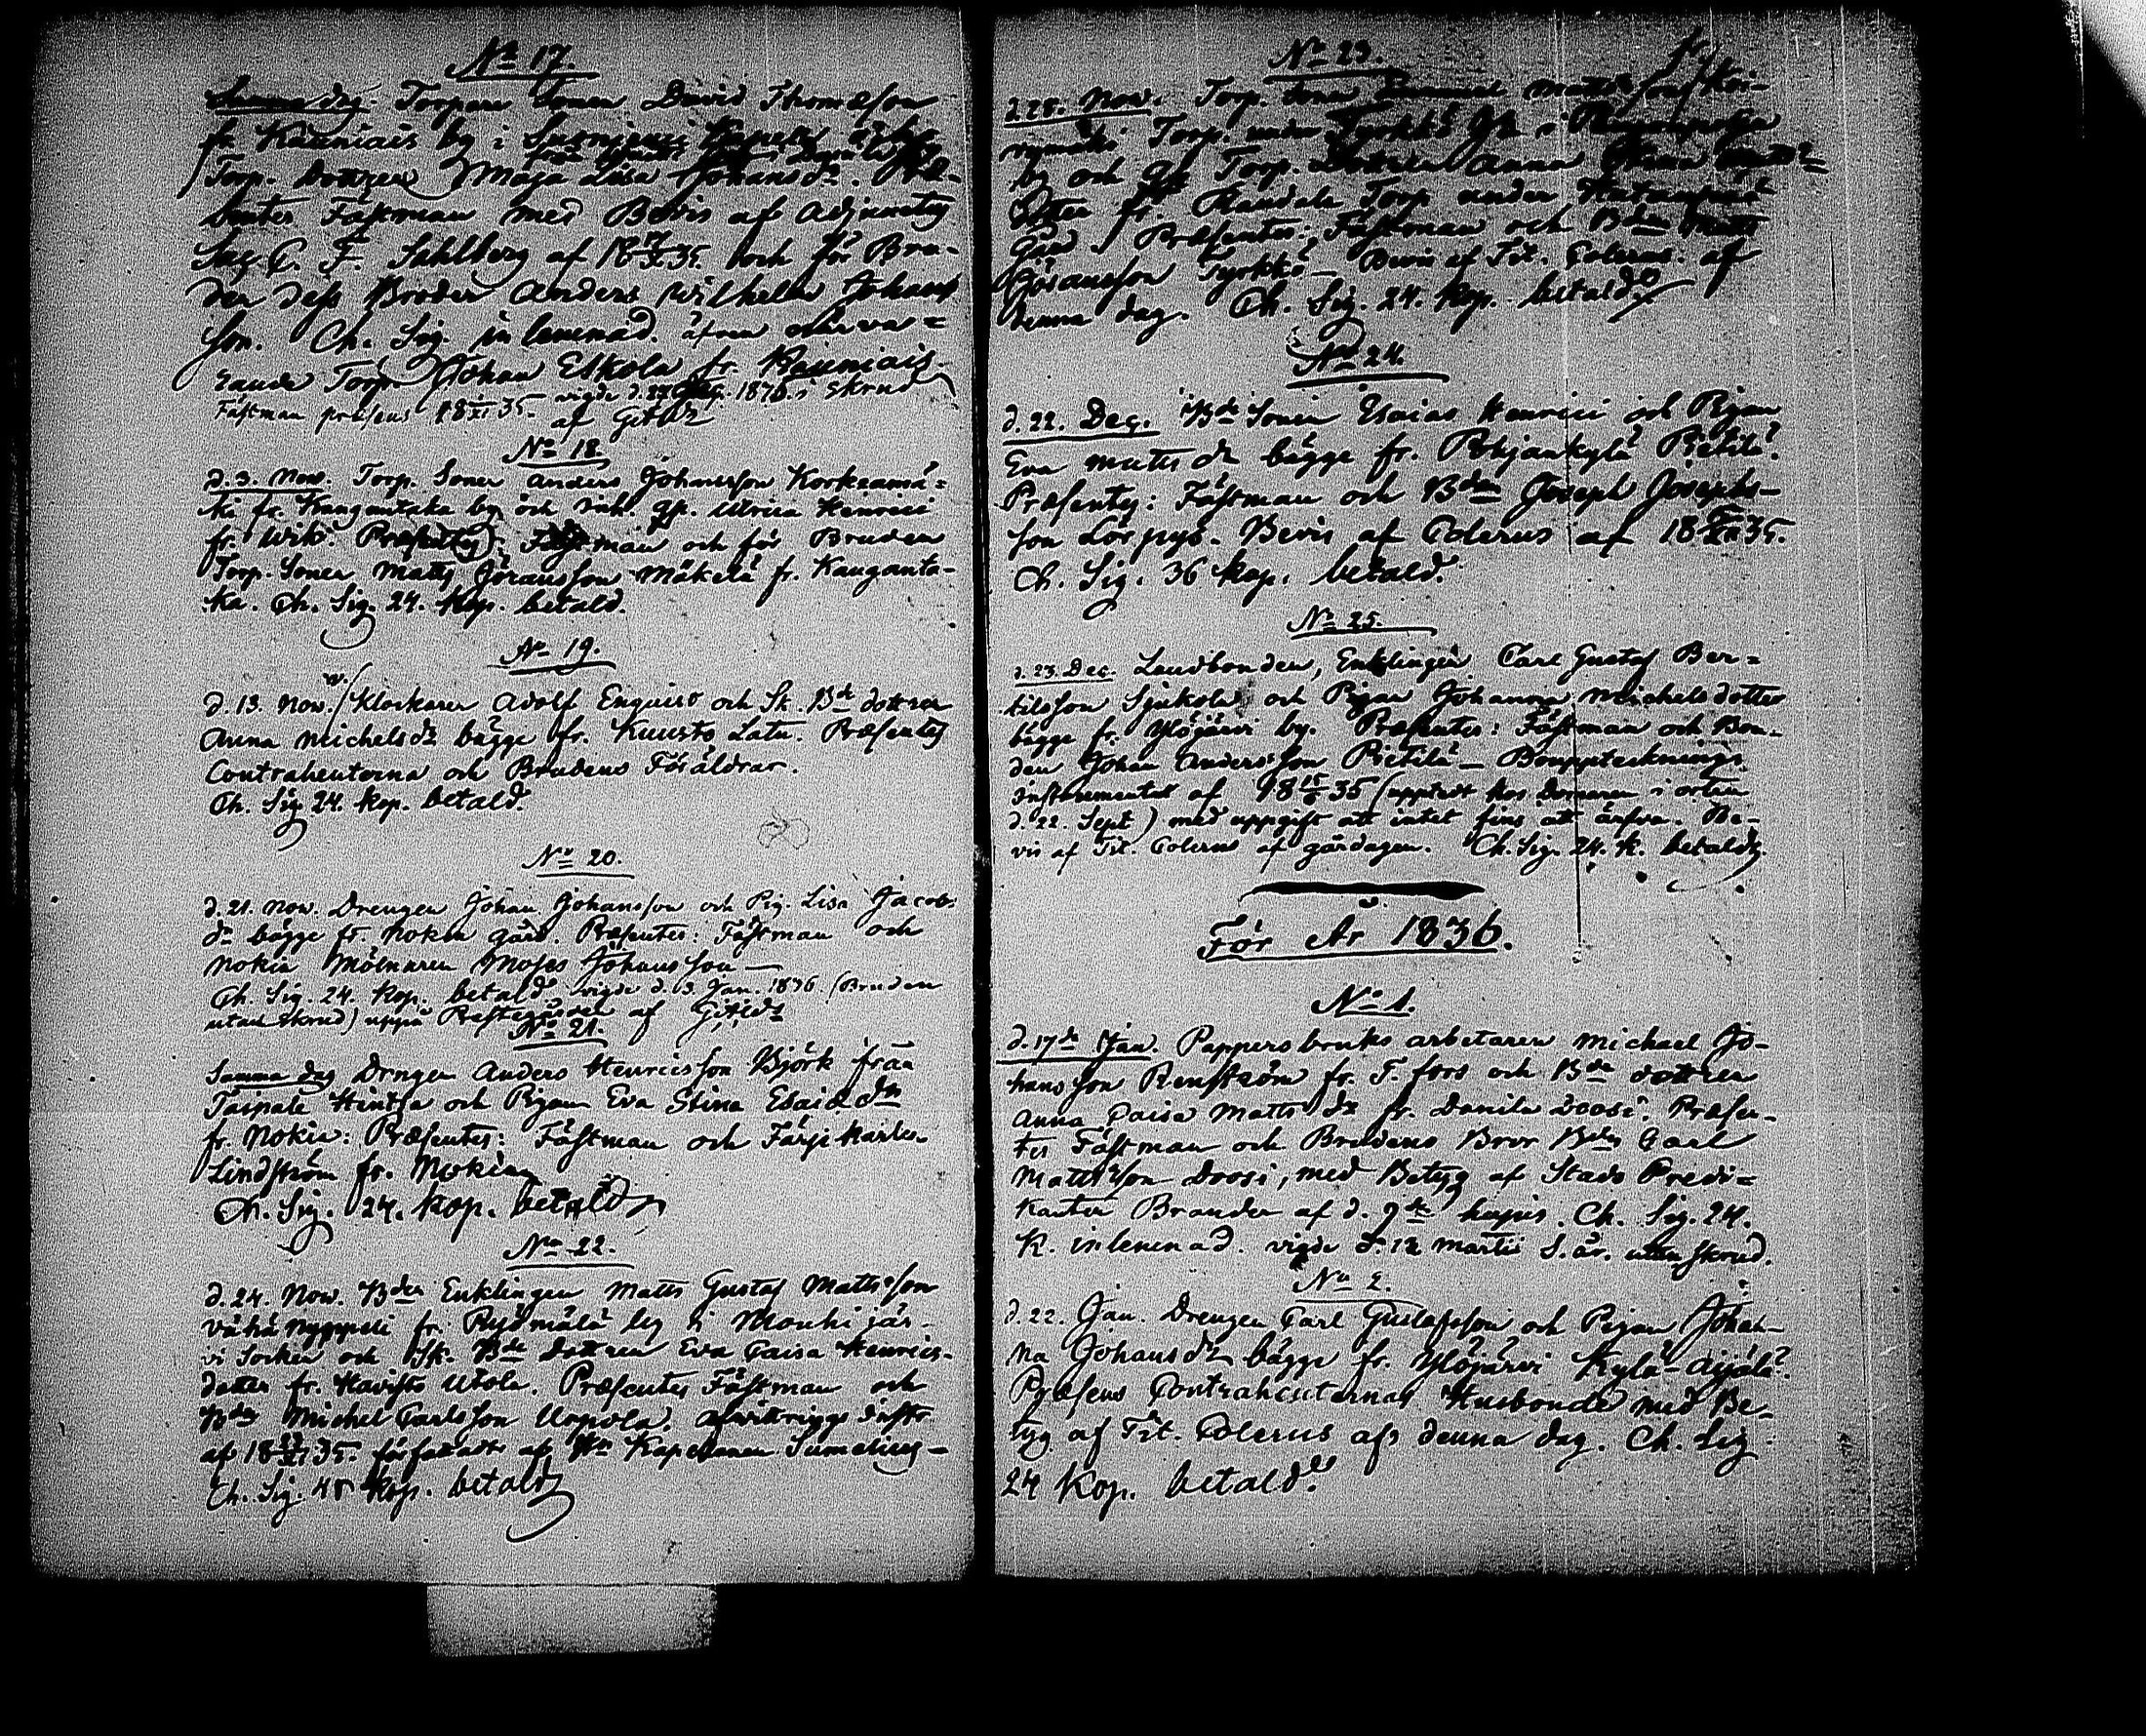 No 17.
Samma dag. Torpare Sonen David Thomasson
fr. Kauniais by i
Torp. Dottren Maja Lisa Johansdr.
Fästman med Bevis af Adjuncten
Sac. G. F. Sahlberg af 18 35. och för Bru-
den dess Broder Anders Wilhelm Johans
son. Ch. Sig. inlemnad. äfven närva=
rande Torp. Johan Eskola fr. Kauniais.
Fästman præsens 18 XI 35. vigde d. 27 1876. i skrud
af
No 18.
d. 3. Nov. Torp. Sonen Anders Johansson Korkeamä=
ki fr. Kangantaka by och Ulrica Heinrici
fr. Wik. Præsentes: Fästman och för Bruden
Torp. Sonen Matts Göransson Mäkelä fr. Kanganta-
ka. Ch. Sig. 24. Kop. betald.
No 19.
d. 13. Nov. Klockaren Adolf Enquist och Sk. Bde dottren
Anna Michelsdr bägge fr. Kuusto Latu. Præsentes
Contrahenterna och Brudens Föräldrar.
Ch. Sig. 24. kop. betald.
No 20.
d. 21. Nov. Drengen Johan Johansson och Pig. Lisa Jacobs
dr bägge fr. Nokia gård. Præsentes: Fästman och
Nokia Mölnaren Moses Johansson —
Ch. Sig. 24. Kop. betald vigde d. 3. Jan. 1836. (Bruden
utan skrud) uppå Prestegården af
No 21.
Samma dag Drngen Anders Henricsson Björk från
Taipale Hintsa och Pigan Eva Stina Esaiædr
fr. Nokia: Præsentes: Fästman och Färjekarlen
Lindström fr. Nokia
Ch. Sig. 24. kop. betald
No 22.
d. 24. Nov. Bden Enklingen Matts Gustaf Mattsson
vähä nyppeli fr. Pyömälä by i Mouhijär-
vi Socken och Sk. Bde dottren Eva Caisa Henrics-
dotter fr. Havisto Utola. Præsentes Fästman och
Bden Michel Carlsson Uppola. afvittrings Instr.
af 18 XI 35. författadt af Hr Kapellanen Sumelius —
Ch. Sig. 48 Kop. betald
No 23.
d. 28. Nov. Torp. Sonen Mattsson
Torp. under Tyrkkö
by och Torp. Dottren Anna
fr. Torp under
Præsentes: Fästman och Bden Matts
Göransson Tyrkkö — Bevis af Tit. Polerus af
denna dag. Ch. Sig. 24. Kop. betald
No 24.
d. 22. Dec. Bde Sonen Esaias Henrici och Pigan
Eva Mattsdr bägge fr. Pohjankylä Pietilä.
Præsentes: Fästman och Bden Joseph Josephs-
son Lörpys. Bevis af Polerus af 18 XII 35.
Ch. Sig. 36 kop. betald.
No 25.
d. 23. Dec. Landbonden, Enklingen Carl Gustaf Ber=
tilsson Sjukola och Pigan Johanna Michelsdotter
bägge fr. Ylöjärvi by. Præsentes: Fästman och Bon-
den Johan Andersson Pietilä — Bouppteknings
Instrumentet af 18 15/6 35 (upptedt hos Domaren i orten
d. 22. Sept) med uppgift att intet fins att ärfva. Be-
vis af Tit. Polerus af gårdagen. Ch. Sig. 24. K. betald.
För År 1836.
No 1.
d. 17de Jan. Pappersbruks arbetaren Michael Jo-
hansson Renström fr. T. fors och Bde dottren
Anna Caisa Mattsdr fr. Danila Doosi. Præsen-
tes Fästman och Brudens Bror Bden Carl
Mattsson Doosi, med Betyg af Stads Predi=
kanten Brander af d. 9de hujus. Ch. Sig. 24.
K. inlemnad. vigde d. 12 Martii s. år. utan skrud.
No 2.
d. 22. Jan. Drengen Carl Gustafsson och Pigan Johan-
na Johansdr bägge fr. Ylöjärvi Kylä-Äijälä.
Præsens Contrahenternas Husbonde med Be-
tyg af Tit. Polerus af denna dag. Ch. Sig.
24 Kop. betald.